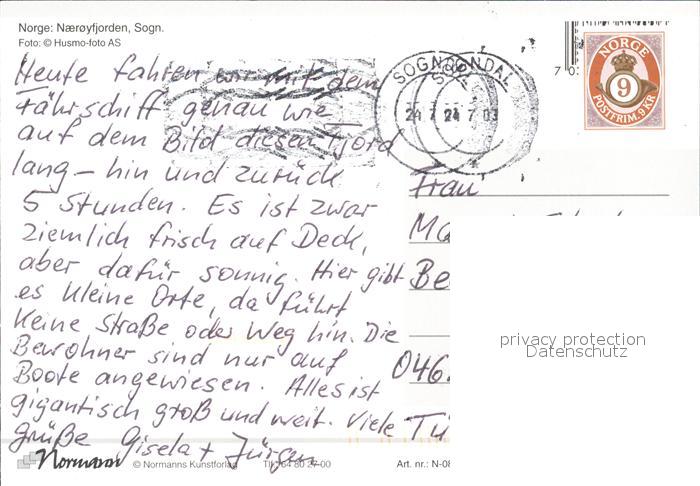 Norge: Nærøyfjorden, Sogn.
Foto: © Husmo-foto AS
Heute fahren wir mit dem
Fährschiff genau wie
auf dem Bild diesen Fjord
lang – hin und zurück
5 Stunden. Es ist zwar
ziemlich frisch auf Deck,
aber dafür sonnig. Hier gibt
es kleine Orte, da führt
keine Straße oder Weg hin. Die
Bewohner sind nur auf
Boote angewiesen. Alles ist
gigantisch groß und weit. Viele
Grüße Gisela + Jürgen
Normann
© Normanns Kunstforlag
Tlf. 64 80 27 00
Art. nr.: N-08
SOGNDAL
24 7 03
NORGE
9
POSTFRIM. 9 KR
7 0
Frau
Ma
Be
046
Tü
privacy protection
Datenschutz